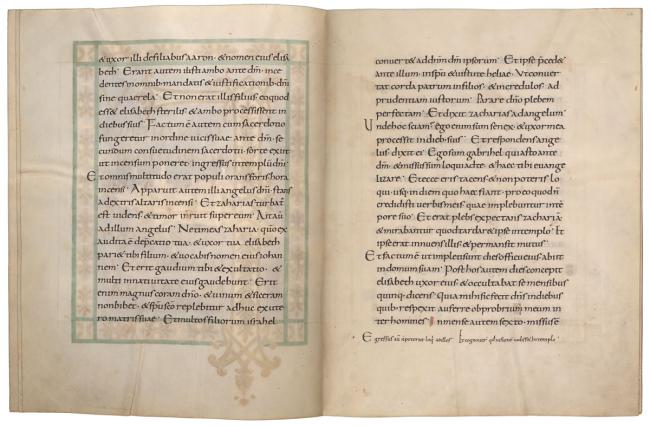 & uxor illi defiliabus aaron · & nomen eius elisa
beth · Erant autem iusti ambo ante dm̅ · ince
dentes in omnib· mandatis & iustificationib· dn̅i
sine quaerela · Et non erat illis filius eo quod
ess& elisabeth sterilis & ambo processissent in
diebus suis Factum ē autem cum sacerdotio
fungeretur in ordine vicis suae ante dm̅ · se
cundum consuetudinem sacerdotii · sorte exiit
ut incensum poneret · ingressus in templū dn̅i ·
Et omnis multitudo erat populi orans foris hora
incensi · Apparuit autem illi angelus dn̅i · stans
a dextris altaris incensi · Et zaharias turbat'
est videns · & timor inruit super eum · Ait aū
ad illum angelus · Ne timeas zaharia · quō ex
audita ē depcatio tua · & uxor tua elisabeth
pari& tibi filium · & vocabis nomen eius iohan
nem · Et erit gaudium tibi & exultatio · &
multi in nativitate eius gaudebunt · Erit
enim magnus coram dn̅o · & vinum & siceram
non bib& · & spūscō replebitur adhuc ex ute
ro matris suae · Et multos filiorum israhel
convert& ad dn̅m dm̅ ipsorum · Et ipse pced&
ante illum · in spū & virtute heliae · Ut convер
tat corda patrum in filios · & incredulos ad
prudentiam iustorum · Parare dn̅o plebem
perfectam · Et dixit zacharias ad angelum
Unde hoc sciam · ego enim sum senex · & uxor mea
processit in diebus suis · Et respondens ange
lus · dixit ei · Ego sum gabrihel qui asto ante
dm̅ · & missus sum loqui ad te · & haec tibi evange
lizare · Et ecce eris tacens · & non poteris lo
qui · usq· in diem quo haec fiant · pro eo quod n̅
credidisti verbis meis · quae implebuntur in tē
pore suo · Et erat plebs expectans zachariā ·
& mirabantur quod tardar& ipse in templo · Et
ipse erat innuens illis & permansit mutus ·
Et factum ē ut impleti sunt dies officii eius · abiit
in domum suam · Post hos autem dies concepit
elisabeth uxor eius · & occultabat se mensibus
quinq· dicens · Quia mihi sic fecit dn̅s in diebus
quib· respexit auferre obprobrium meum in
ter homines · In mense autem sexto · missus ē